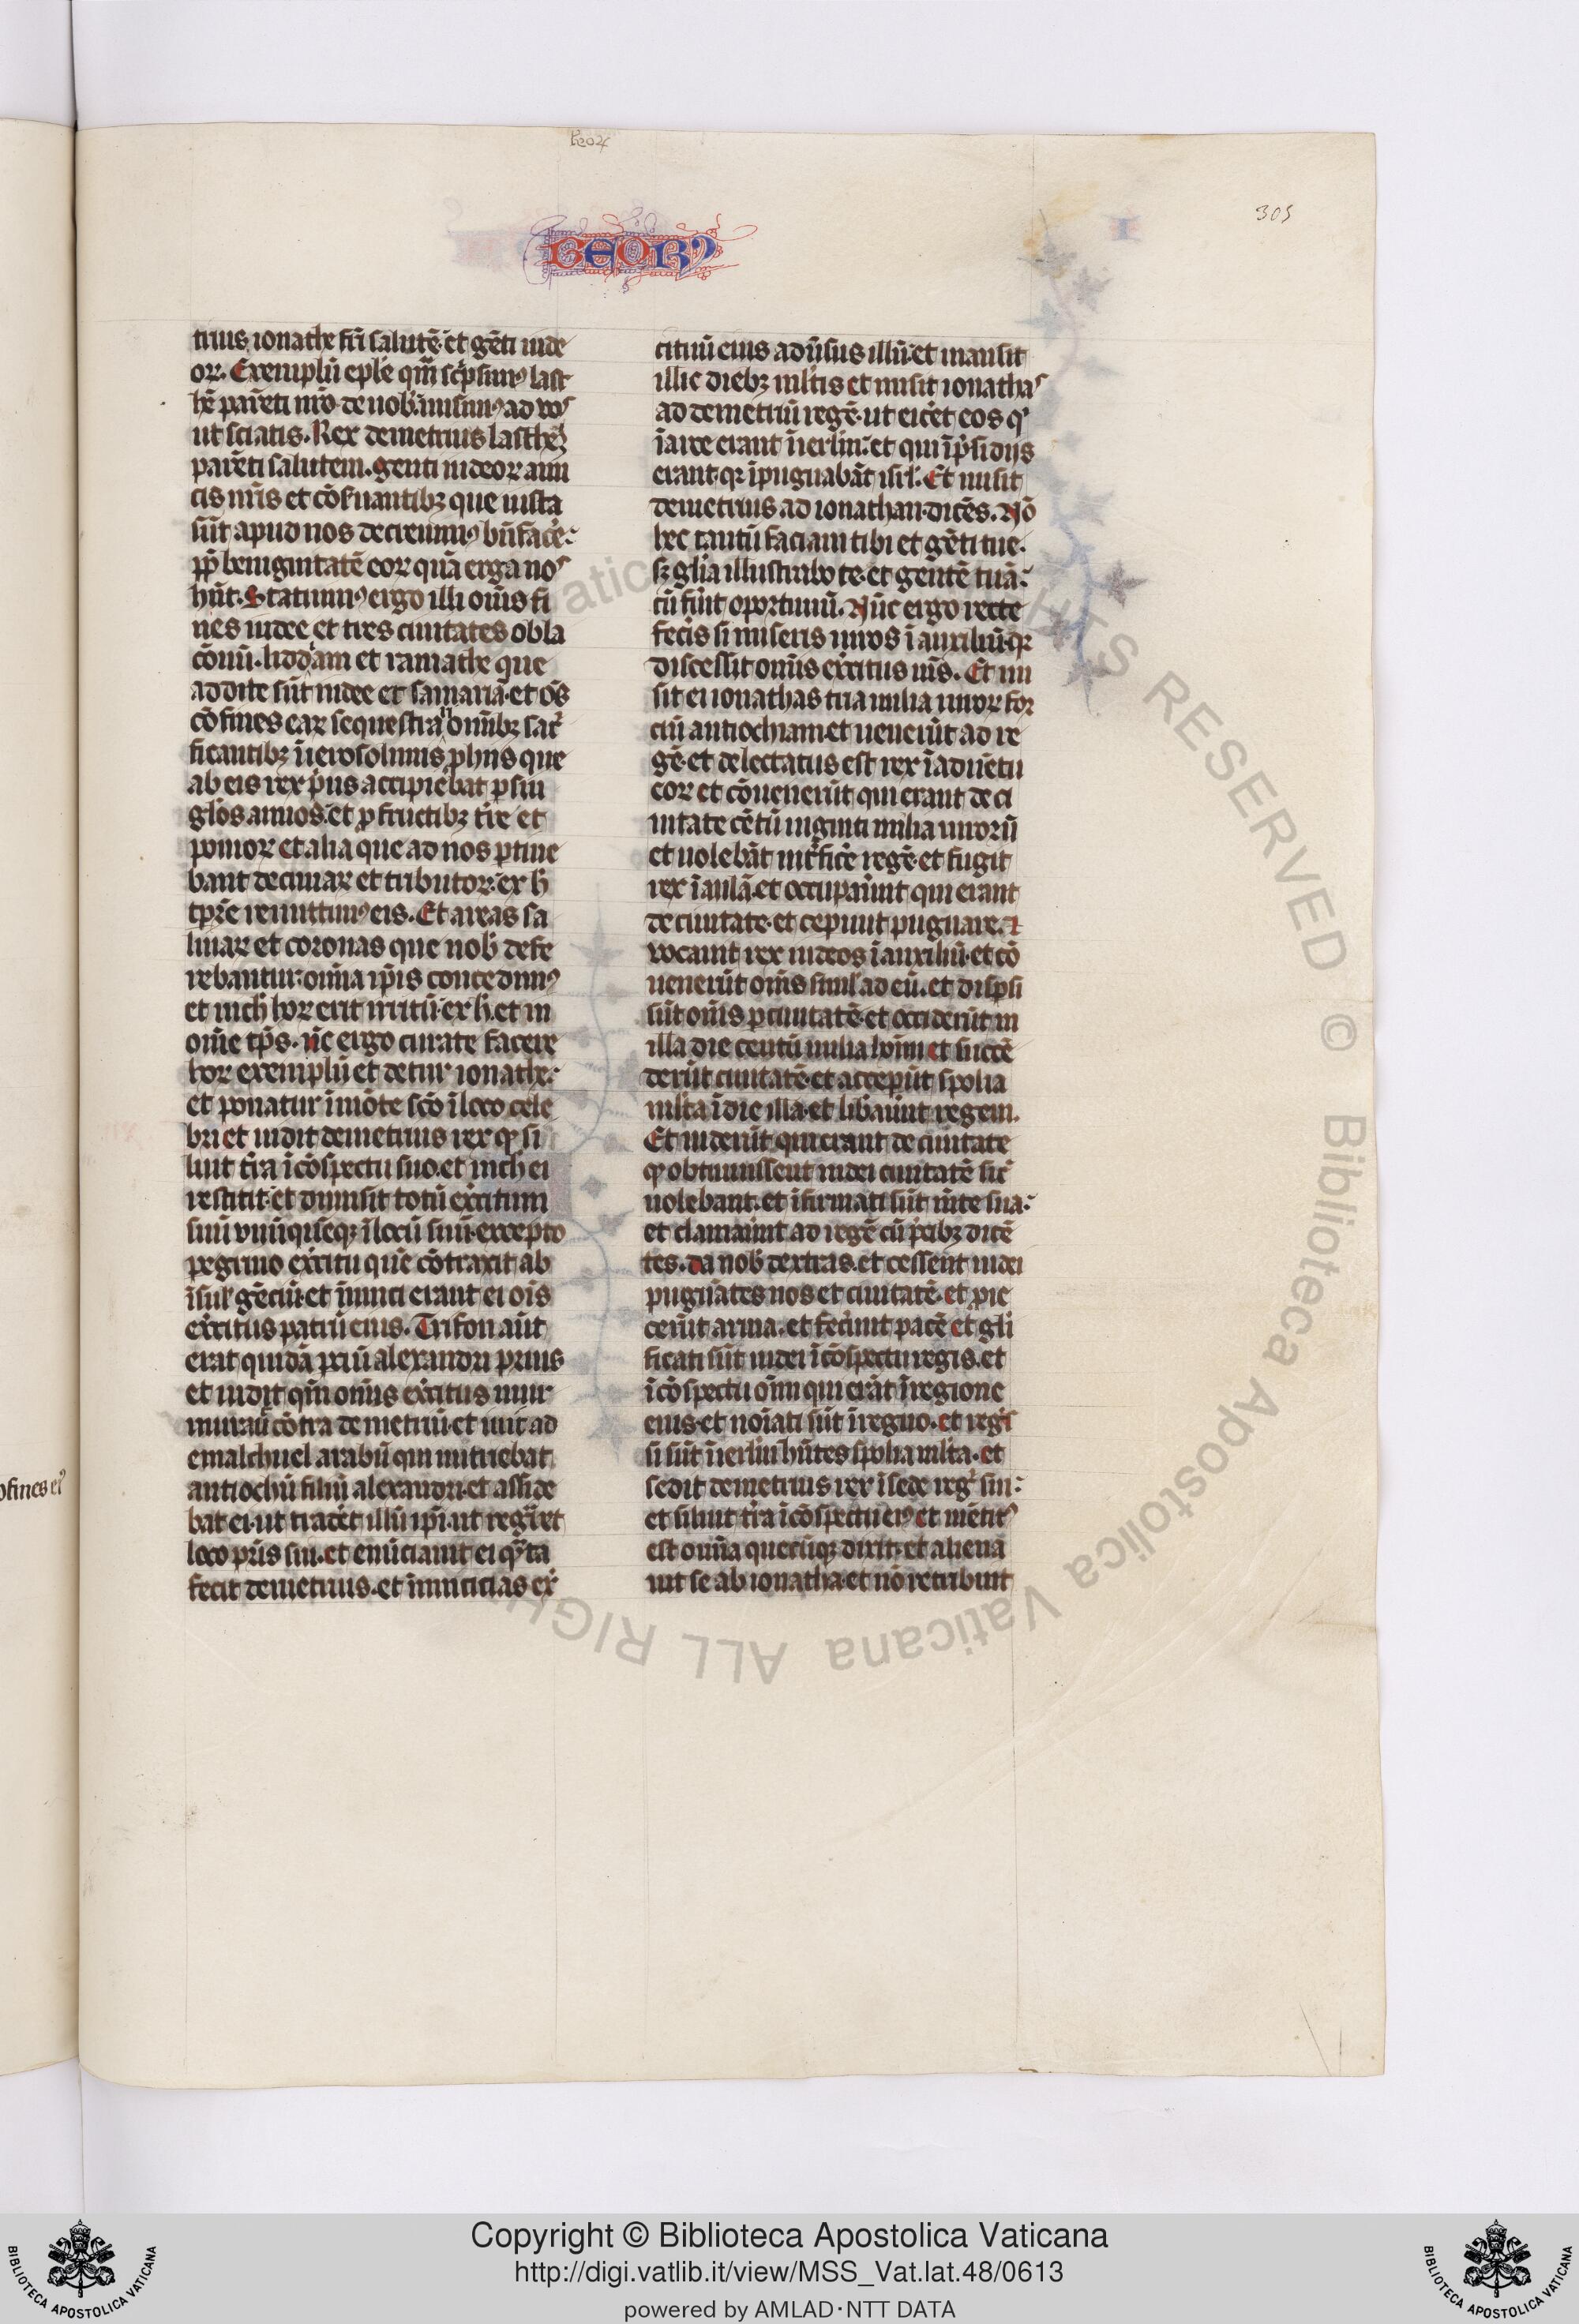 305
BEORV
trius ionathe fr̄i salutē. et gēti iude
oꝝ. Exemplū eple quā scpsimꝰ last
hē parēti nr̄o de uob̄. misimꝰ ad uos
ut sciatis. Rex demetrius lasthēi
parēti salutem. genti iudeoꝝ ami
cis nr̄is et cōẜuantibꝫ que iusta
sūt apud nos decreuimꝰ bn̄facē:
ꝓpt̄ benignitatē eoꝝ quā erga nos
hn̄t. Statuimꝰ ergo illi om̄s fi
nes iudee et tres ciuitates obla
cōnū. liddam et ramathe que
addite sūt iudee et samaria. et om̄s
cōfines eaꝝ sequestra om̄ibꝫ sac̄
ficantibꝫ ī ierosolimis ꝓ hiis que
ab eis rex pͥus accipiebat ꝑ sin
glos annos. et ꝓ fructibꝫ tr̄e et
pomoꝝ et alia que ad nos ꝑtine
bant decimaꝝ et tributoꝝ. ex h̄
tꝑe remittimꝰ eis. Et areas sa
linaꝝ et coronas que nob̄ defe
rebantur. om̄ia ip̄is concedimꝰ
et nich̄ hoꝝ erit irritū. ex h̄. et in
om̄e tp̄s. nc̄ ergo curate facere
hoꝝ exemplū et detur ionathe:
et ponatur ī mōte sc̄o ī loco cele
bri et uidit demetrius rex ꝙ si
luit tr̄a ī cōspectu suo. et nich̄ ei
restitit. et dimisit totū exc̄itum
suū vnūquēqꝫ ī locū suū. excepto
ꝑegrino exc̄itu quē cōtraxit ab
īsul̄ gēciū. et inimici erant ei om̄s
exc̄itus patrū eius. Trifon aūt
erat quidā ꝑciū alexandri prius
et uidit qm̄ om̄is exc̄itus mur
muraū cōtra demetriū. et iuit ad
emalchuel arabū qui nutriebat
antiochū filiū alexandri. et asside
bat ei. ut traderet illū ip̄i. ut regn̄et
loco pr̄is sui. et enūciauit ei qͣnta
fecit demetrius. et inimicicias ex̄
citiuū eius aduͥsus illū. et mansit
illic diebꝫ ml̄tis et misit ionathas
ad demetriū regē. ut eic̄et eos qͥ
ī arce erant ī ierlm̄. et qui ī pͥsidiis
erant. qꝛ īpugnabāt isrl̄. Et misit
demetrius ad ionathan. dicēs. Nō
hec tantū faciam tibi et gēti tue.
sꝫ gl̄ia illustrabo te. et gentē tuā:
cū fūit oportunū. Nūc ergo recte
fecis si miseris uiros ī auxiliū. qꝛ
discessit om̄is exc̄itus m̄s. Et mi
sit ei ionathas tria milia uiroꝝ for
ciū antiochiam. et uenerūt ad re
gē. et delectatus est rex ī aduētu
eoꝝ et cōuenerūt qui erant de ci
uitate cētū uiginti milia uiroꝝ
et uolebāt int̄ficē regē. et fugit
rex ī aulā. et occupauūt qui erant
de ciuitate. et ceperūt pugnare. &
uocauit rex iudeos ī auxiliū. et cō
uenerūt om̄s simul̄ ad eū. et disꝑsi
sūt om̄s ꝑ ciuitatē. et occiderūt in
illa die centū milia hoīm et succē
derūt ciuitatē. et ceperūt spolia
ml̄ta ī die illa. et lib̄auūt regem.
Et uiderūt qui erant de ciuitate
ꝙ obtinuissent iudei ciuitatē sic̄
uolebant. et īfirmati sūt mēte sua:
et clamauūt ad regē cū pͥcibꝫ dicē
tes. da nob̄ dextras. et cessent iudei
pugnātes nos et ciuitatē. et ꝓie
cerūt arma. et fecerūt pacē et gl̄i
ficati sūt iudei ī cōspectu regis. et
ī cōspectu om̄iū qui erāt ī regione
eius. et noīati sūt ī regno. et reg̃s
si sūt ī ierlm̄ hn̄tes spolia ml̄ta. et
sedit demetrius rex ī sede regͥ sui:
et siluit tr̄a ī cōspectu eiꝰ et mētitꝰ
est om̄ia quecūqꝫ dixit. et aliena
uit se ab ionatha. et nō retribuit
ofines eiꝰ
Biblioteca Apostolica Vaticana ALL RIGHTS RESERVED ©
Copyright © Biblioteca Apostolica Vaticana
http://digi.vatlib.it/view/MSS_Vat.lat.48/0613
powered by AMLAD·NTT DATA
BIBLIOTECA APOSTOLICA VATICANA
BIBLIOTECA APOSTOLICA VATICANA